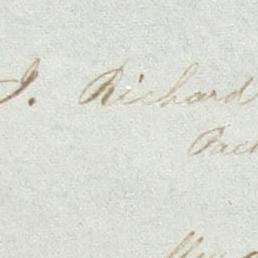 J. Richard
Pac